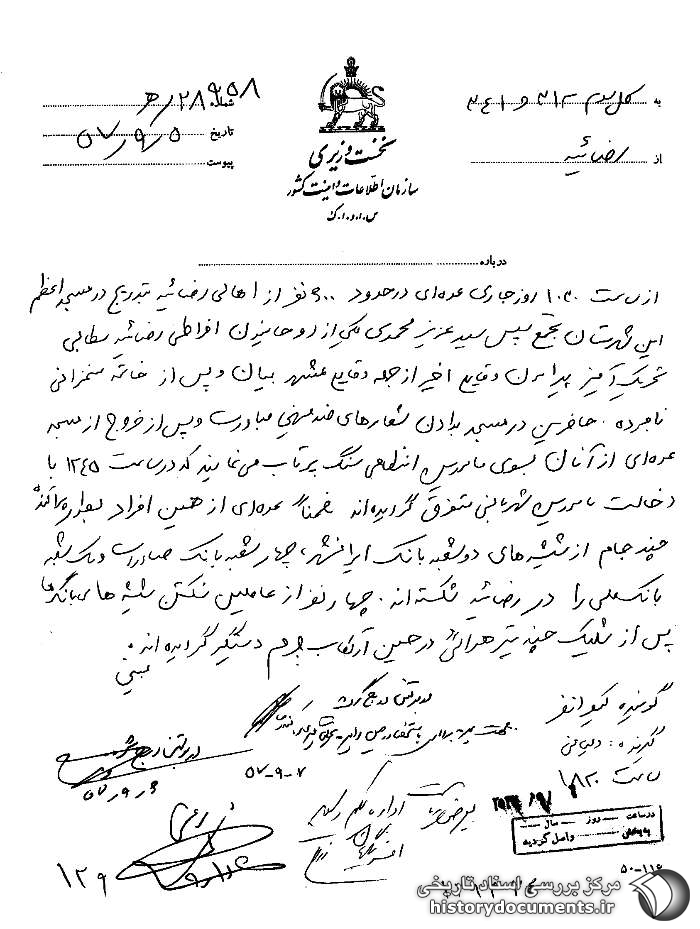 به کل سوم ۳۱۲ و ۳۴۱
از رضائیه
نخست وزیری
سازمان اطلاعات و امنیت کشور
س.ا.و.ا.ک
شماره ۲۸۹۵۸/ه
تاریخ ۵۷/۹/۵
پیوست
درباره
از ساعت ۱۰۳۰ روز جاری عده‌ای در حدود ۶۰۰ نفر از اهالی رضائیه بتدریج در مسجد اعظم
این شهرستان تجمع سپس سید عزیز محمدی یکی از روحانیون افراطی رضائیه مطالبی
تحریک آمیز پیرامون وقایع اخیر از جمله وقایع مشهد بیان و پس از خاتمه سخنرانی
نامبرده، حاضرین در مسجد بدادن شعارهای ضد میهنی مبادرت و پس از خروج از مسجد
عده‌ای از آنان بسوی مامورین انتظامی سنگ پرتاب می‌نمایند که در ساعت ۱۲۴۵ با
دخالت مامورین شهربانی متفرق گردیده‌اند ضمناً عده‌ای از همین افراد بطور پراکنده
چند جام از شیشه‌های دو شعبه بانک ایرانشهر، چهار شعبه بانک صادرات و یک شعبه
بانک ملی را در رضائیه شکسته‌اند. چهار نفر از عاملین شکستن شیشه‌های بانک‌ها
پس از شلیک چند تیر هوائی در حین ارتکاب جرم دستگیر گردیده‌اند.
گوینده کیوانفر
گیرنده:
ساعت ۱۸۲۰
۵۷-۹-۷
۵۷/۹/۶
در ساعت روز سال
به بخش واصل گردید
۱۲۹
۵۰-۱۱۶
مرکز بررسی اسناد تاریخی
historydocuments.ir